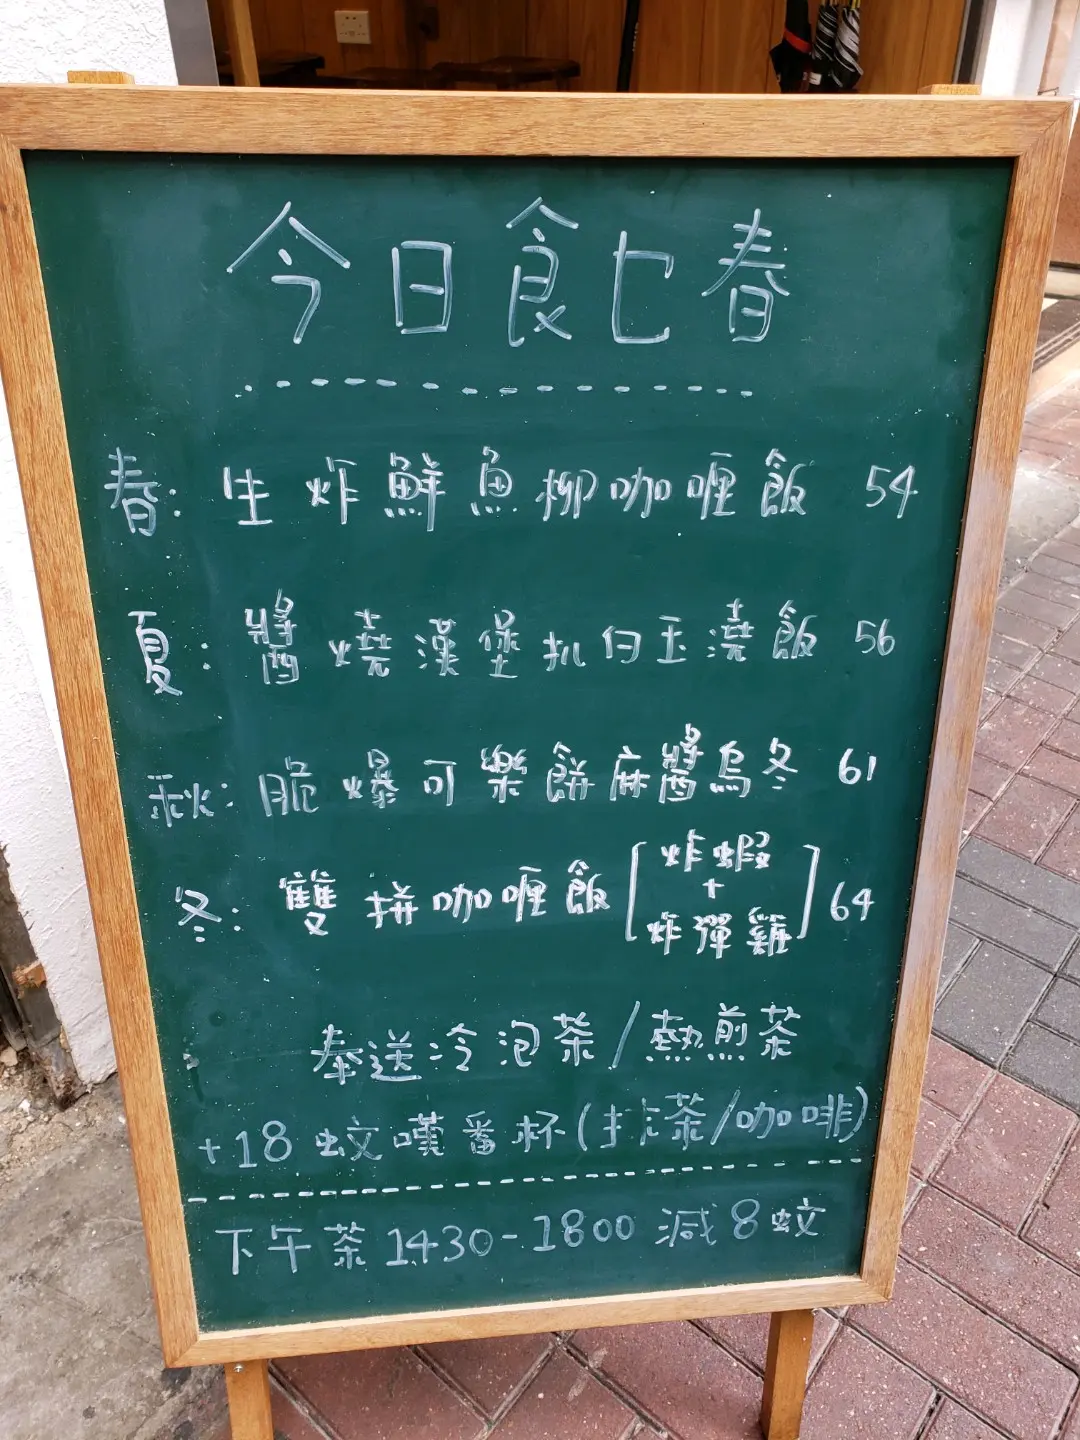 今日食乜春
春: 生炸鮮魚柳咖喱飯 54
夏: 醬燒漢堡扒白玉澆飯 56
秋: 脆爆可樂餅麻醬烏冬 61
冬: 雙拼咖喱飯[炸蝦+炸彈雞] 64
奉送冷泡茶/熱煎茶
+18 蚊嘆番杯(抹茶/咖啡)
下午茶 1430-1800 減8蚊